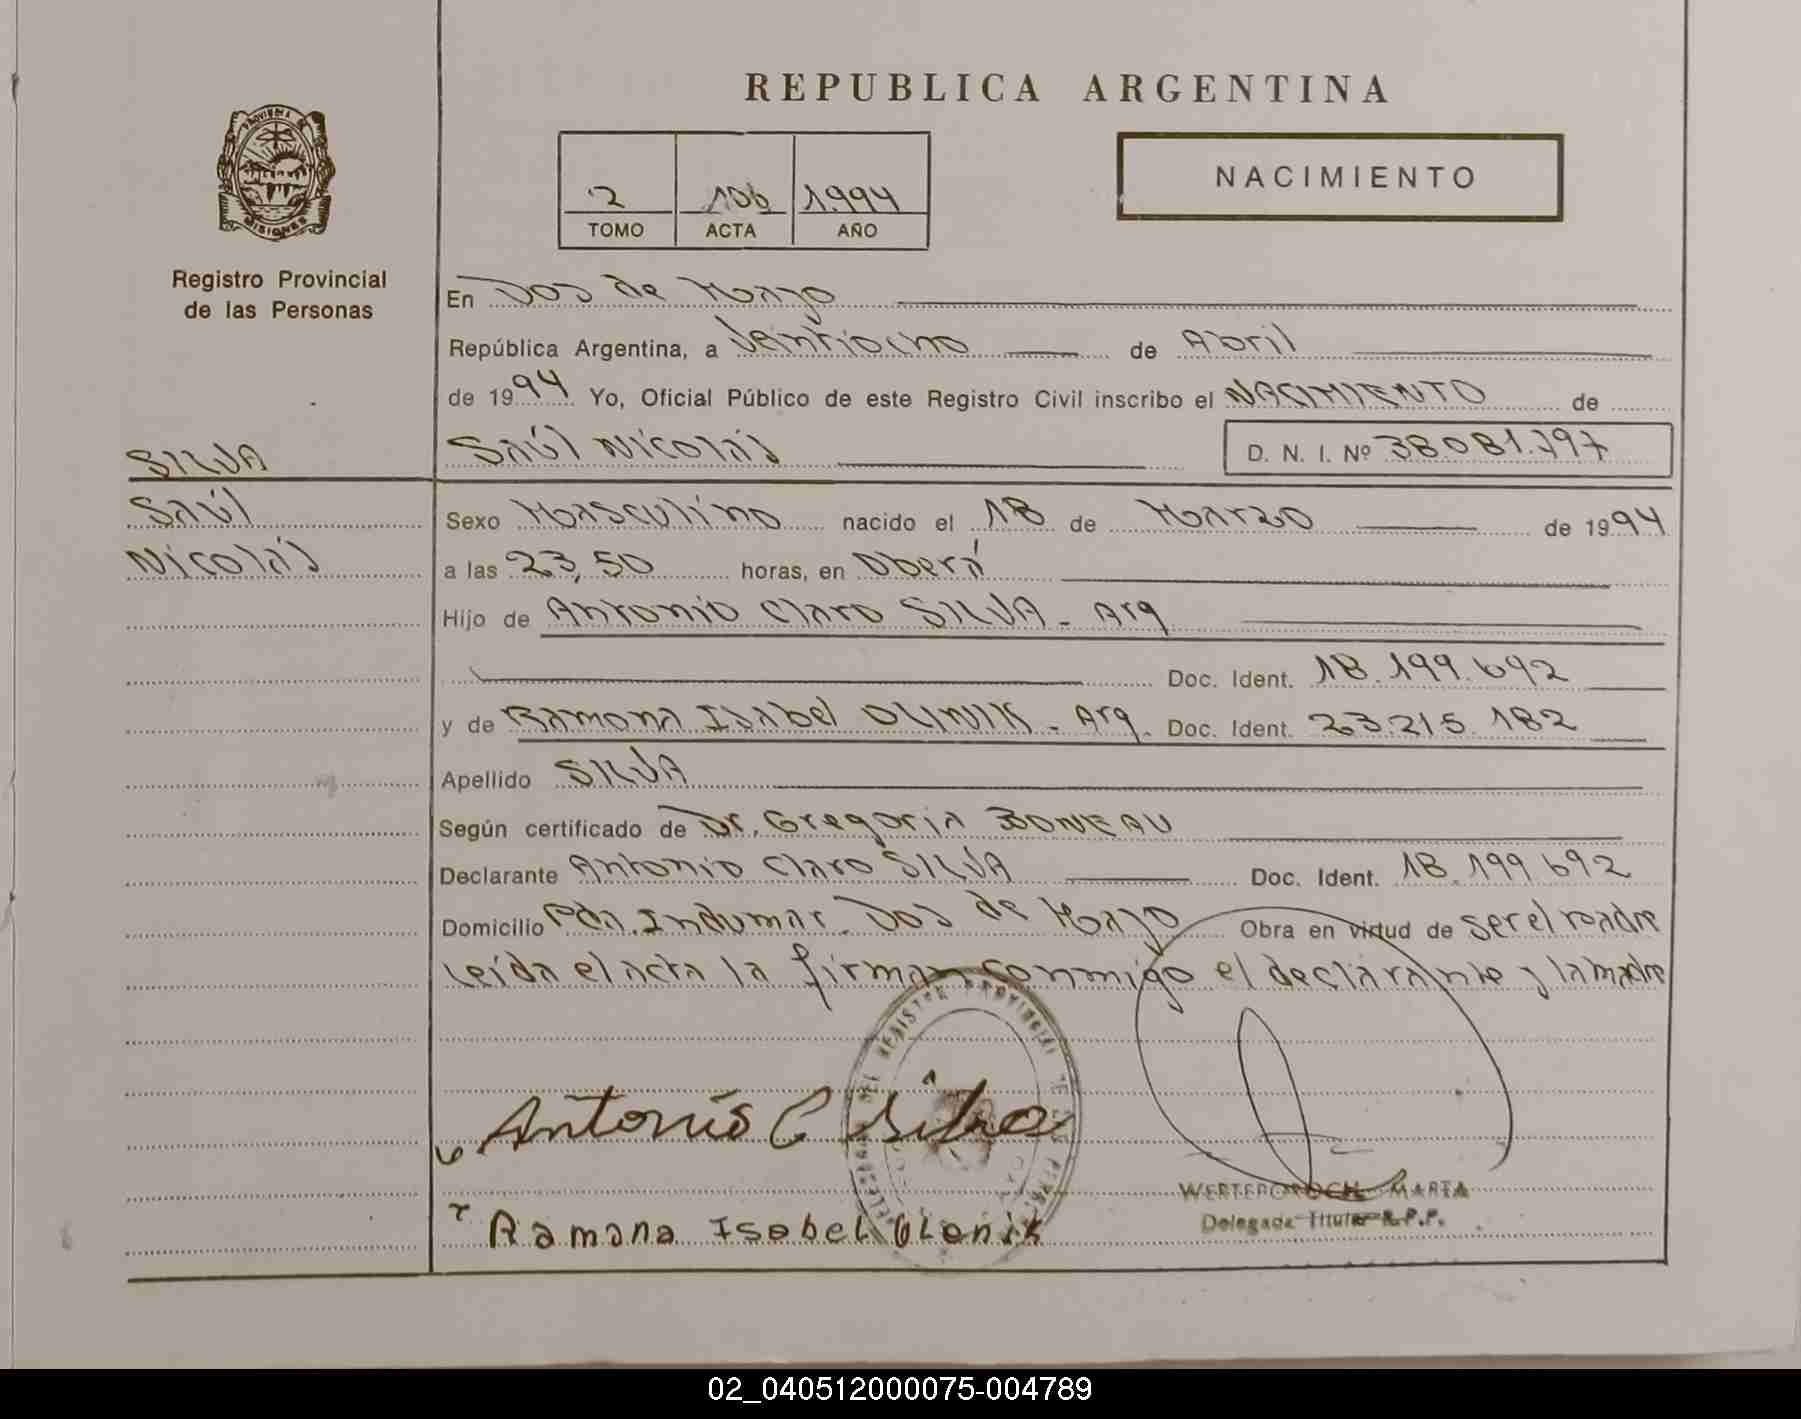 REPUBLICA ARGENTINA
PROVINCIA DE
MISIONES
Registro Provincial
de las Personas
2 106 1.994
TOMO ACTA AÑO
NACIMIENTO
En Dos de Mayo
República Argentina, a Veintiocho de Abril
de 1994 Yo, Oficial Público de este Registro Civil inscribo el NACIMIENTO de
SILVA
Saúl Nicolás D. N. I. Nº 38.081.797
Saúl
Sexo Masculino nacido el 18 de Marzo de 1994
Nicolás
a las 23,50 horas, en Oberá
Hijo de Antonio Claro SILVA - Arg
Doc. Ident. 18.199.692
y de Ramona Isabel OLINIK - Arg. Doc. Ident. 23.215.182
Apellido SILVA
Según certificado de Dr. Gregoria BONEAU
Declarante Antonio Claro SILVA Doc. Ident. 18.199 692
Domicilio Pda. Indumar - Dos de Mayo Obra en virtud de ser el padre
Leída el acta la firman conmigo el declarante y la madre
Antonio C Silva
Ramona Isabel Olenik
MARTA
Delegada Titular R.P.P.
02_040512000075-004789